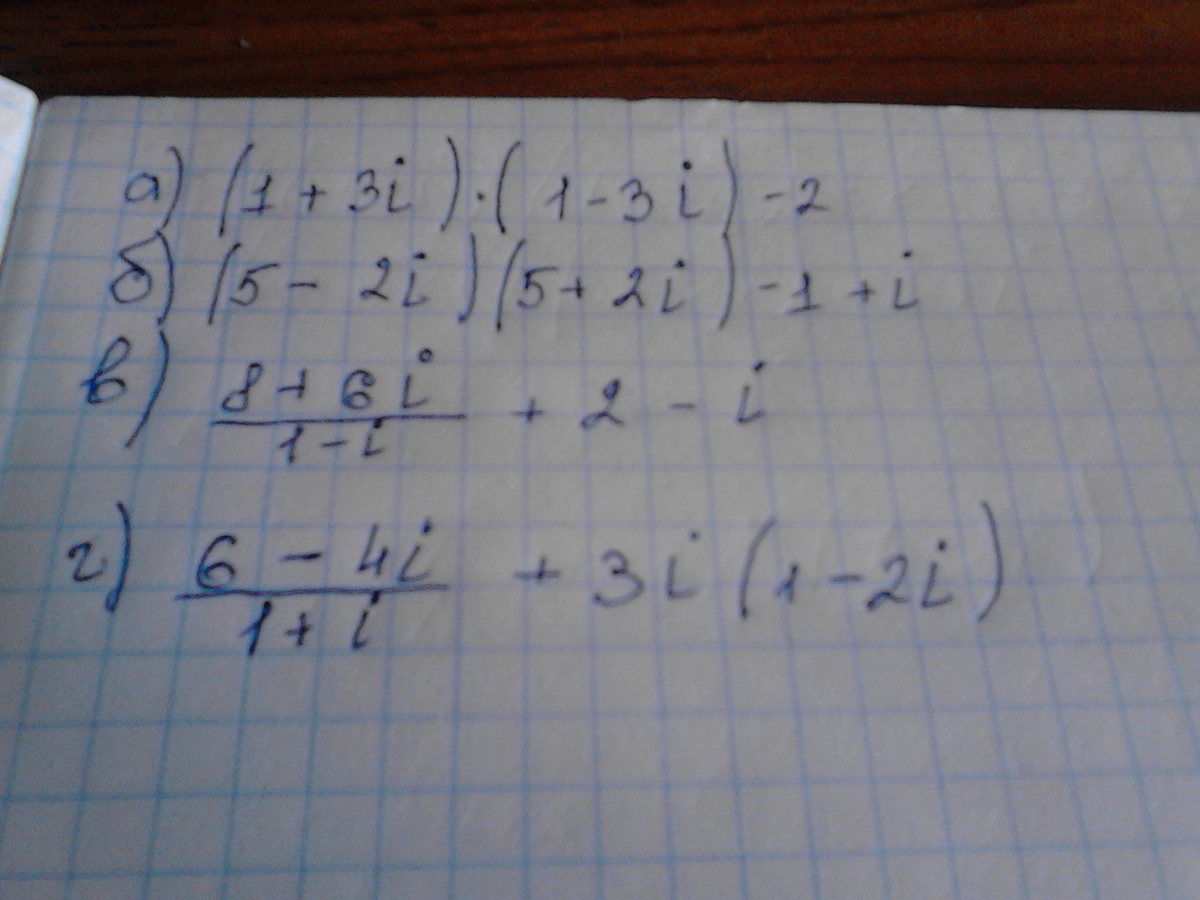 а) (1 + 3i) · (1 - 3i) - 2
б) (5 - 2i)(5 + 2i) - 1 + i
в) \frac{8 + 6i}{1 - i} + 2 - i
г) \frac{6 - 4i}{1 + i} + 3i(1 - 2i)